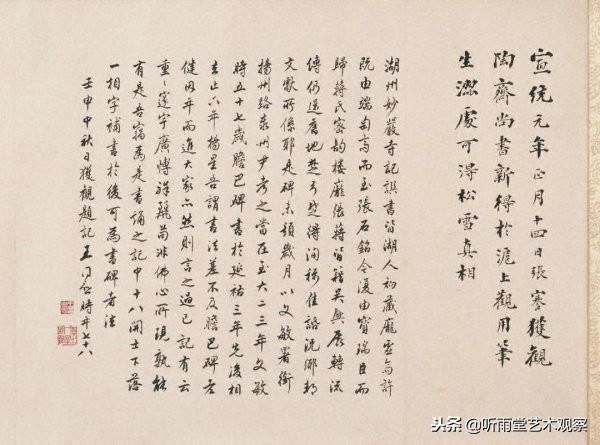 宣統元年正月十四日張謇獲觀
陶齋尚書新得於滬上觀用筆
生澀處可得松雪真相
湖州妙嚴寺記撰書皆湖人初藏龐虛齋許
由端匋齋而至張石銘今復由寶瑞臣而
歸蔣氏密韵樓龐張蔣皆籍吳興展轉流
傳仍還舊地楚弓楚得洵稱佳話況鄉邦
文獻所係耶是碑未題歲月以文敏署銜
揚州路泰州尹考之當在至大二三年文敏
時五十七歲膽巴碑書於延祐三年先後相
去止六年楊星吾謂書法差不及膽巴碑老
健因年而進大家亦然則言之過已記有云
重重邃宇廣博詳麗苟非佛心所現孰能
有是吾為是書誦之記中十八開士下落
一相字補書於後可為書碑者法
壬申中秋日獲觀題記王同愈時年七十八
头条 @听雨堂艺术观察